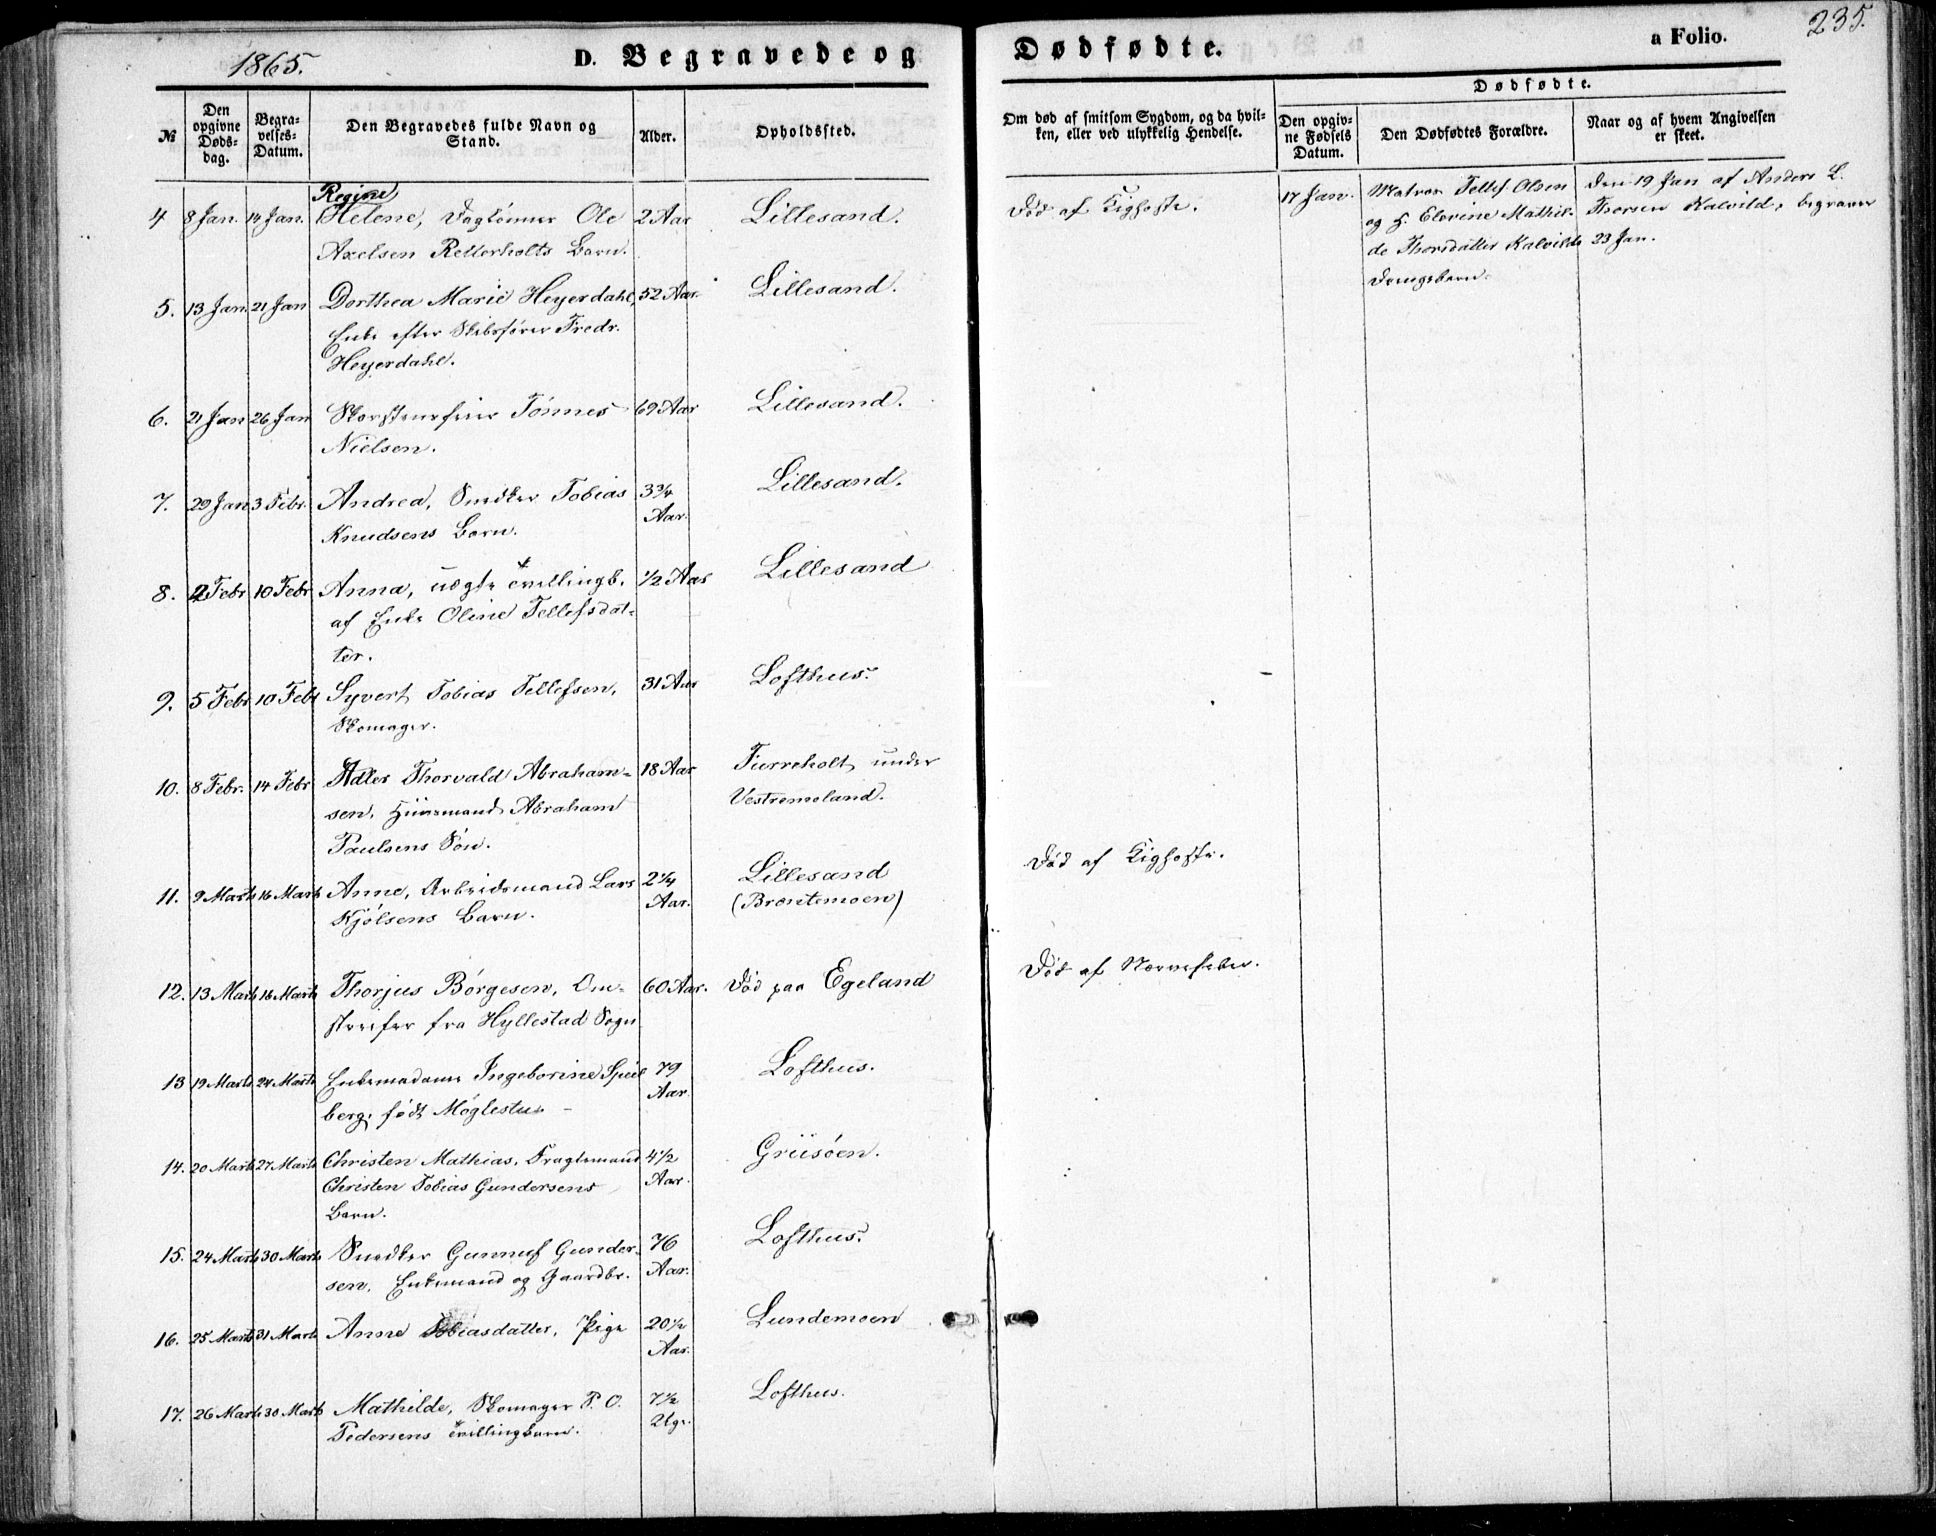 1865.
D. Begravede og
Dødfødte.
a Folio.
235.
№
Den opgivne Døds-dag.
Begra-velses-Datum.
Den Begravedes fulde Navn og Stand.
Alder.
Opholdssted.
Om død af smitsom Sygdom, og da hvil-ken, eller ved ulykkelig Hendelse.
Dødfødte.
Den opgiv-ne Fødsels Datum.
Den Dødfødtes Forældre.
Naar og af hvem Angivelsen er skeet.
Regine
4 8 Jan. 14 Jan. Helene, Daglönner Ole 2 Aar Lillesand. Död af Kighoste.
Axelsen Retterholts Barn.
17 Jan. Matros Tellef Olsen
og H. Elevine Mathil-
de Thorsdatter Kalvilds
Drengebarn.
Den 19 Jan af Anders L.
Thorsen Kalvild, begraven
23 Jan.
5. 13 Jan. 21 Jan Dorthea Marie Heyerdahl, 52 Aar. Lillesand.
Enke efter Skibsfører Fredr.
Heyerdahl.
6. 21 Jan 26 Jan Skorsteensfeier Tönnes 69 Aar Lillesand.
Nielsen.
7. 29 Jan 3 Febr. Andrea, Snedker Tobias 3¾ Lillesand.
Knudsens Barn. Aar.
8. 2 Febr 10 Febr Anna, uægte Tvillingb. ½ Aar Lillesand
af Enke Oline Tellefsdat-
ter.
9. 5 Febr 10 Febr Syvert Tobias Tellefsen, 31 Aar Lofthus.
Skomager.
10. 8 Febr. 14 Febr Adler Thorvald Abraham- 18 Aar Furreholt under
sen, Huusmand Abraham Vestremoland.
Paulsens Sön.
11. 9 Marts 16 Marts Anne, Arbeidsmand Lars 2¼ Lillesand Död af Kighoste.
Kjölsens Barn. Aar. (Brøntemoen)
12. 13 Marts 16 Marts Thorjus Börgesen, Om- 60 Aar. Död paa Egeland Död af Nervefeber.
streifer fra Hyllestad Sogn
13 19 Marts 24 Marts Enkemadame Ingeborine Speil- 79 Lofthus.
berg, född Möglestu. Aar.
14. 20 Marts 27 Marts Christen Mathias, Fragtemand 4½ Griisöen.
Christen Tobias Gundersens Aar.
Barn.
15. 24 Marts 30 Marts Snedker Gunnuf Gunder- 76 Lofthus.
sen, Enkemand og Gaardbr. Aar.
16. 25 Marts 31 Marts Anne Tobiasdatter, Pige 20½ Lundemoen
Aar.
17. 26 Marts 30 Marts Mathilde, Skomager P. O. 7½ Lofthus.
Pedersens Tvillingbarn. Uge.